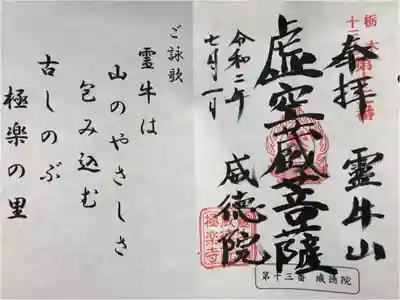 栃木
十三
奉拝
霊牛山
虚空蔵菩薩
威徳院
令和二年
七月一日
極楽寺
第十三番 威徳院
ご詠歌
霊牛は
山のやさしさ
包み込む
古しのぶ
極楽の里